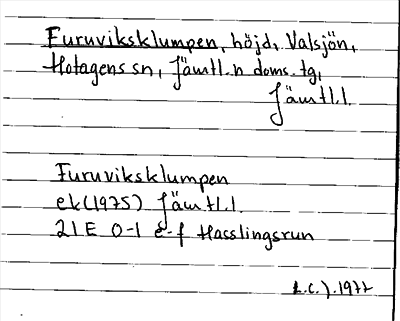 Furuviksklumpen, höjd, Valsjön,
Hotagens sn, Jämtl. n doms. tg,
Jämtl. l.
Furuviksklumpen
ek (1975) Jämtl. l.
21E 0-1 e-f Hasslingsrun
L.C.J. 1977